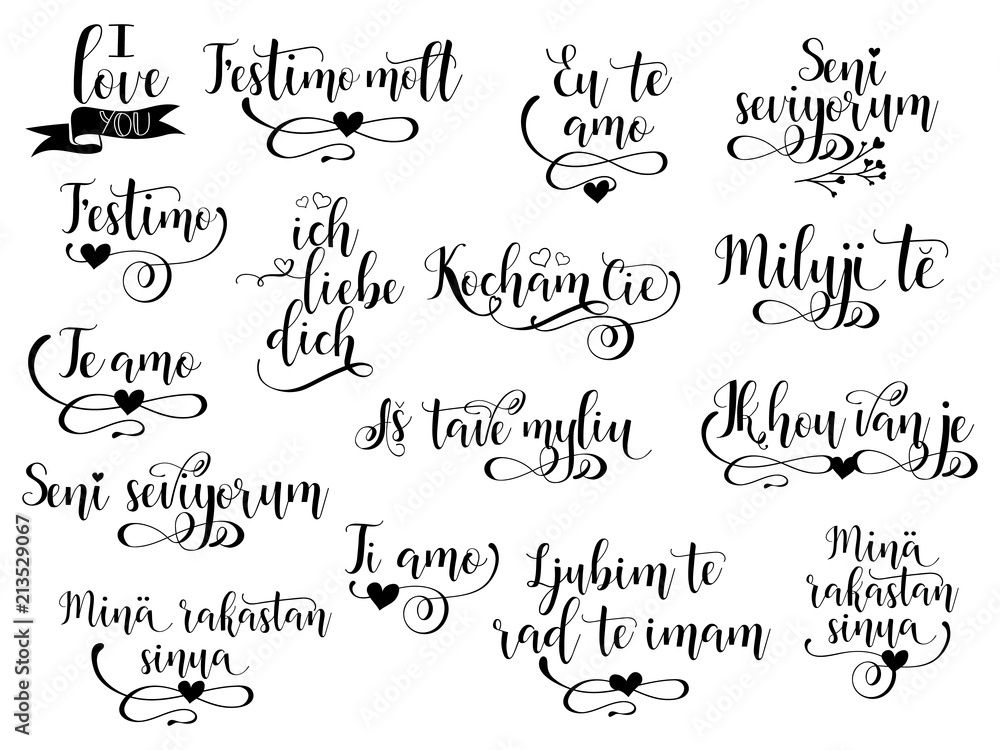 I
love
YOU
T'estimo molt
Eu te
amo
Seni
seviyorum
T'estimo
ich
liebe
dich
Kocham Cie
Miluji tě
Te amo
Aš tave myliu
Ik hou van je
Seni seviyorum
Ti amo
Ljubim te
rad te imam
Minä
rakastan
sinua
Minä rakastan
sinua
Adobe Stock | #213529067